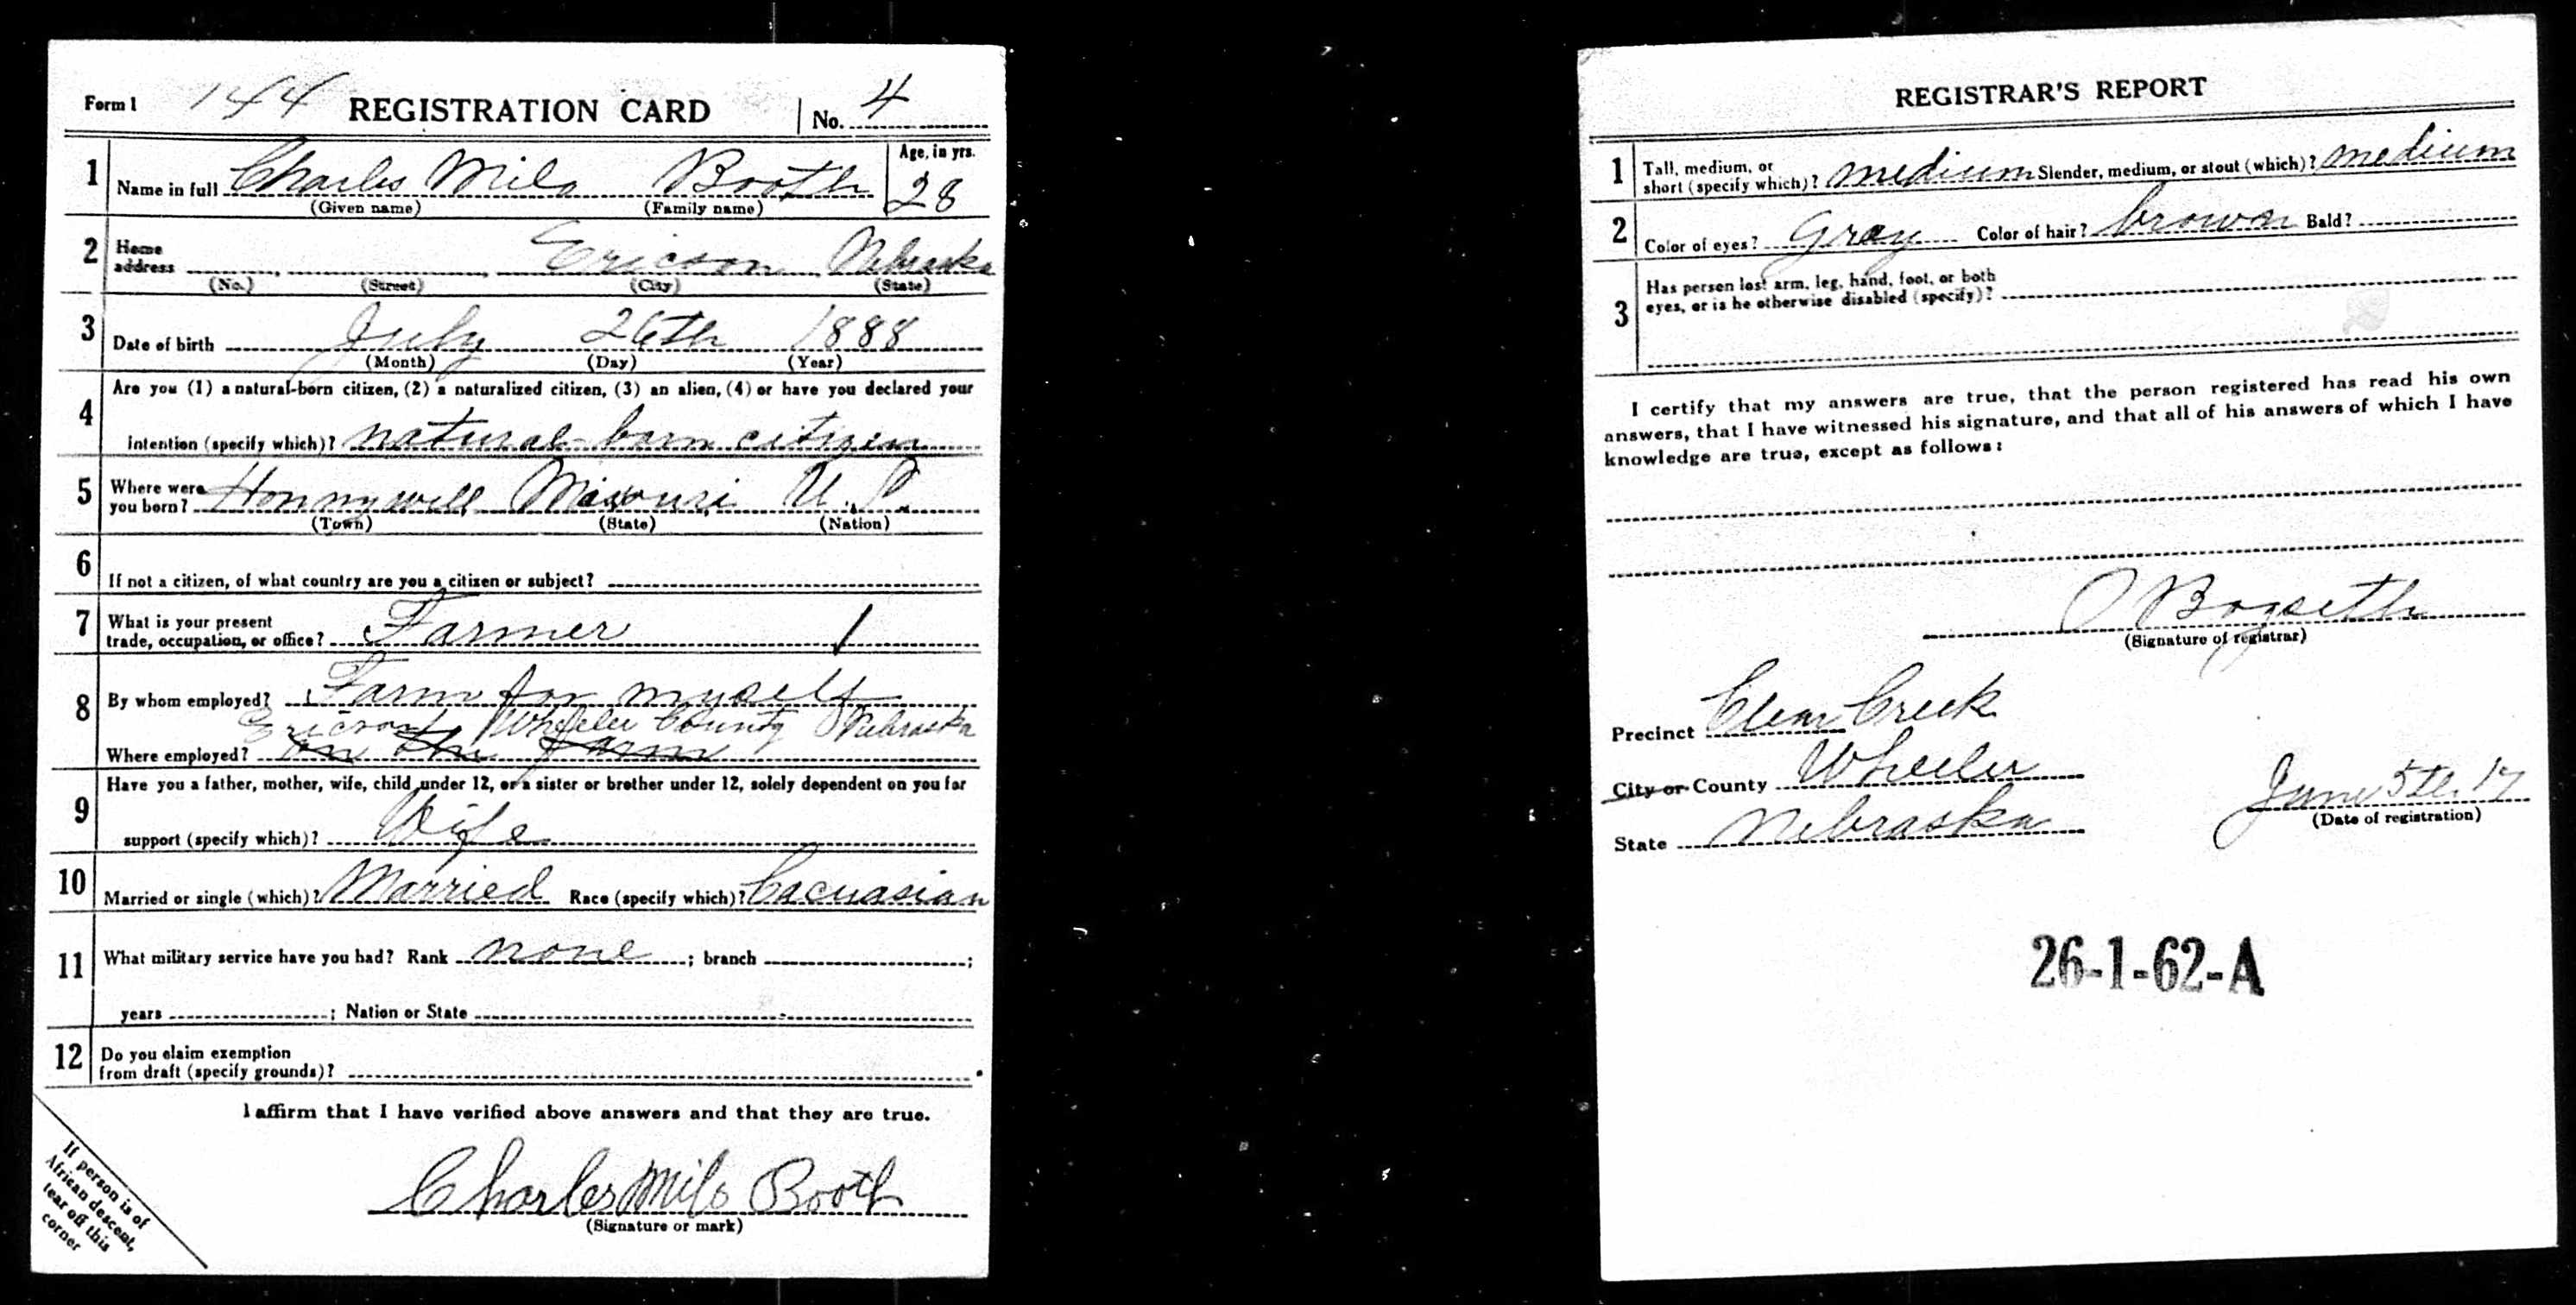 Form 1 144 REGISTRATION CARD No. 4
1 Name in full Charles Milo Booth Age, in yrs. 28
(Given name) (Family name)
2 Home address Ericson Nebraska
(No.) (Street) (City) (State)
3 Date of birth July 26th 1888
(Month) (Day) (Year)
4 Are you (1) a natural-born citizen, (2) a naturalized citizen, (3) an alien, (4) or have you declared your
intention (specify which)? natural born citizen
5 Where were you born? Honnywell Missouri U.S.
(Town) (State) (Nation)
6 If not a citizen, of what country are you a citizen or subject?
7 What is your present
trade, occupation, or office? Farmer 1
8 By whom employed? Farm for myself
Ericson, Wheeler County Nebraska
Where employed? on the farm
9 Have you a father, mother, wife, child under 12, or a sister or brother under 12, solely dependent on you for
support (specify which)? Wife
10 Married or single (which)? Married Race (specify which)? Cacuasian
11 What military service have you had? Rank none ; branch ;
years ; Nation or State
12 Do you claim exemption
from draft (specify grounds)?
I affirm that I have verified above answers and that they are true.
Charles Milo Booth
(Signature or mark)
If person is of
African descent,
tear off this
corner
REGISTRAR'S REPORT
1 Tall, medium, or
short (specify which)? medium Slender, medium, or stout (which)? medium
2 Color of eyes? Gray Color of hair? brown Bald?
3 Has person lost arm, leg, hand, foot, or both
eyes, or is he otherwise disabled (specify)?
I certify that my answers are true, that the person registered has read his own
answers, that I have witnessed his signature, and that all of his answers of which I have
knowledge are true, except as follows:
O Bogseth
(Signature of registrar)
Precinct Clear Creek
City or County Wheeler
State Nebraska June 5th 17
(Date of registration)
26-1-62-A